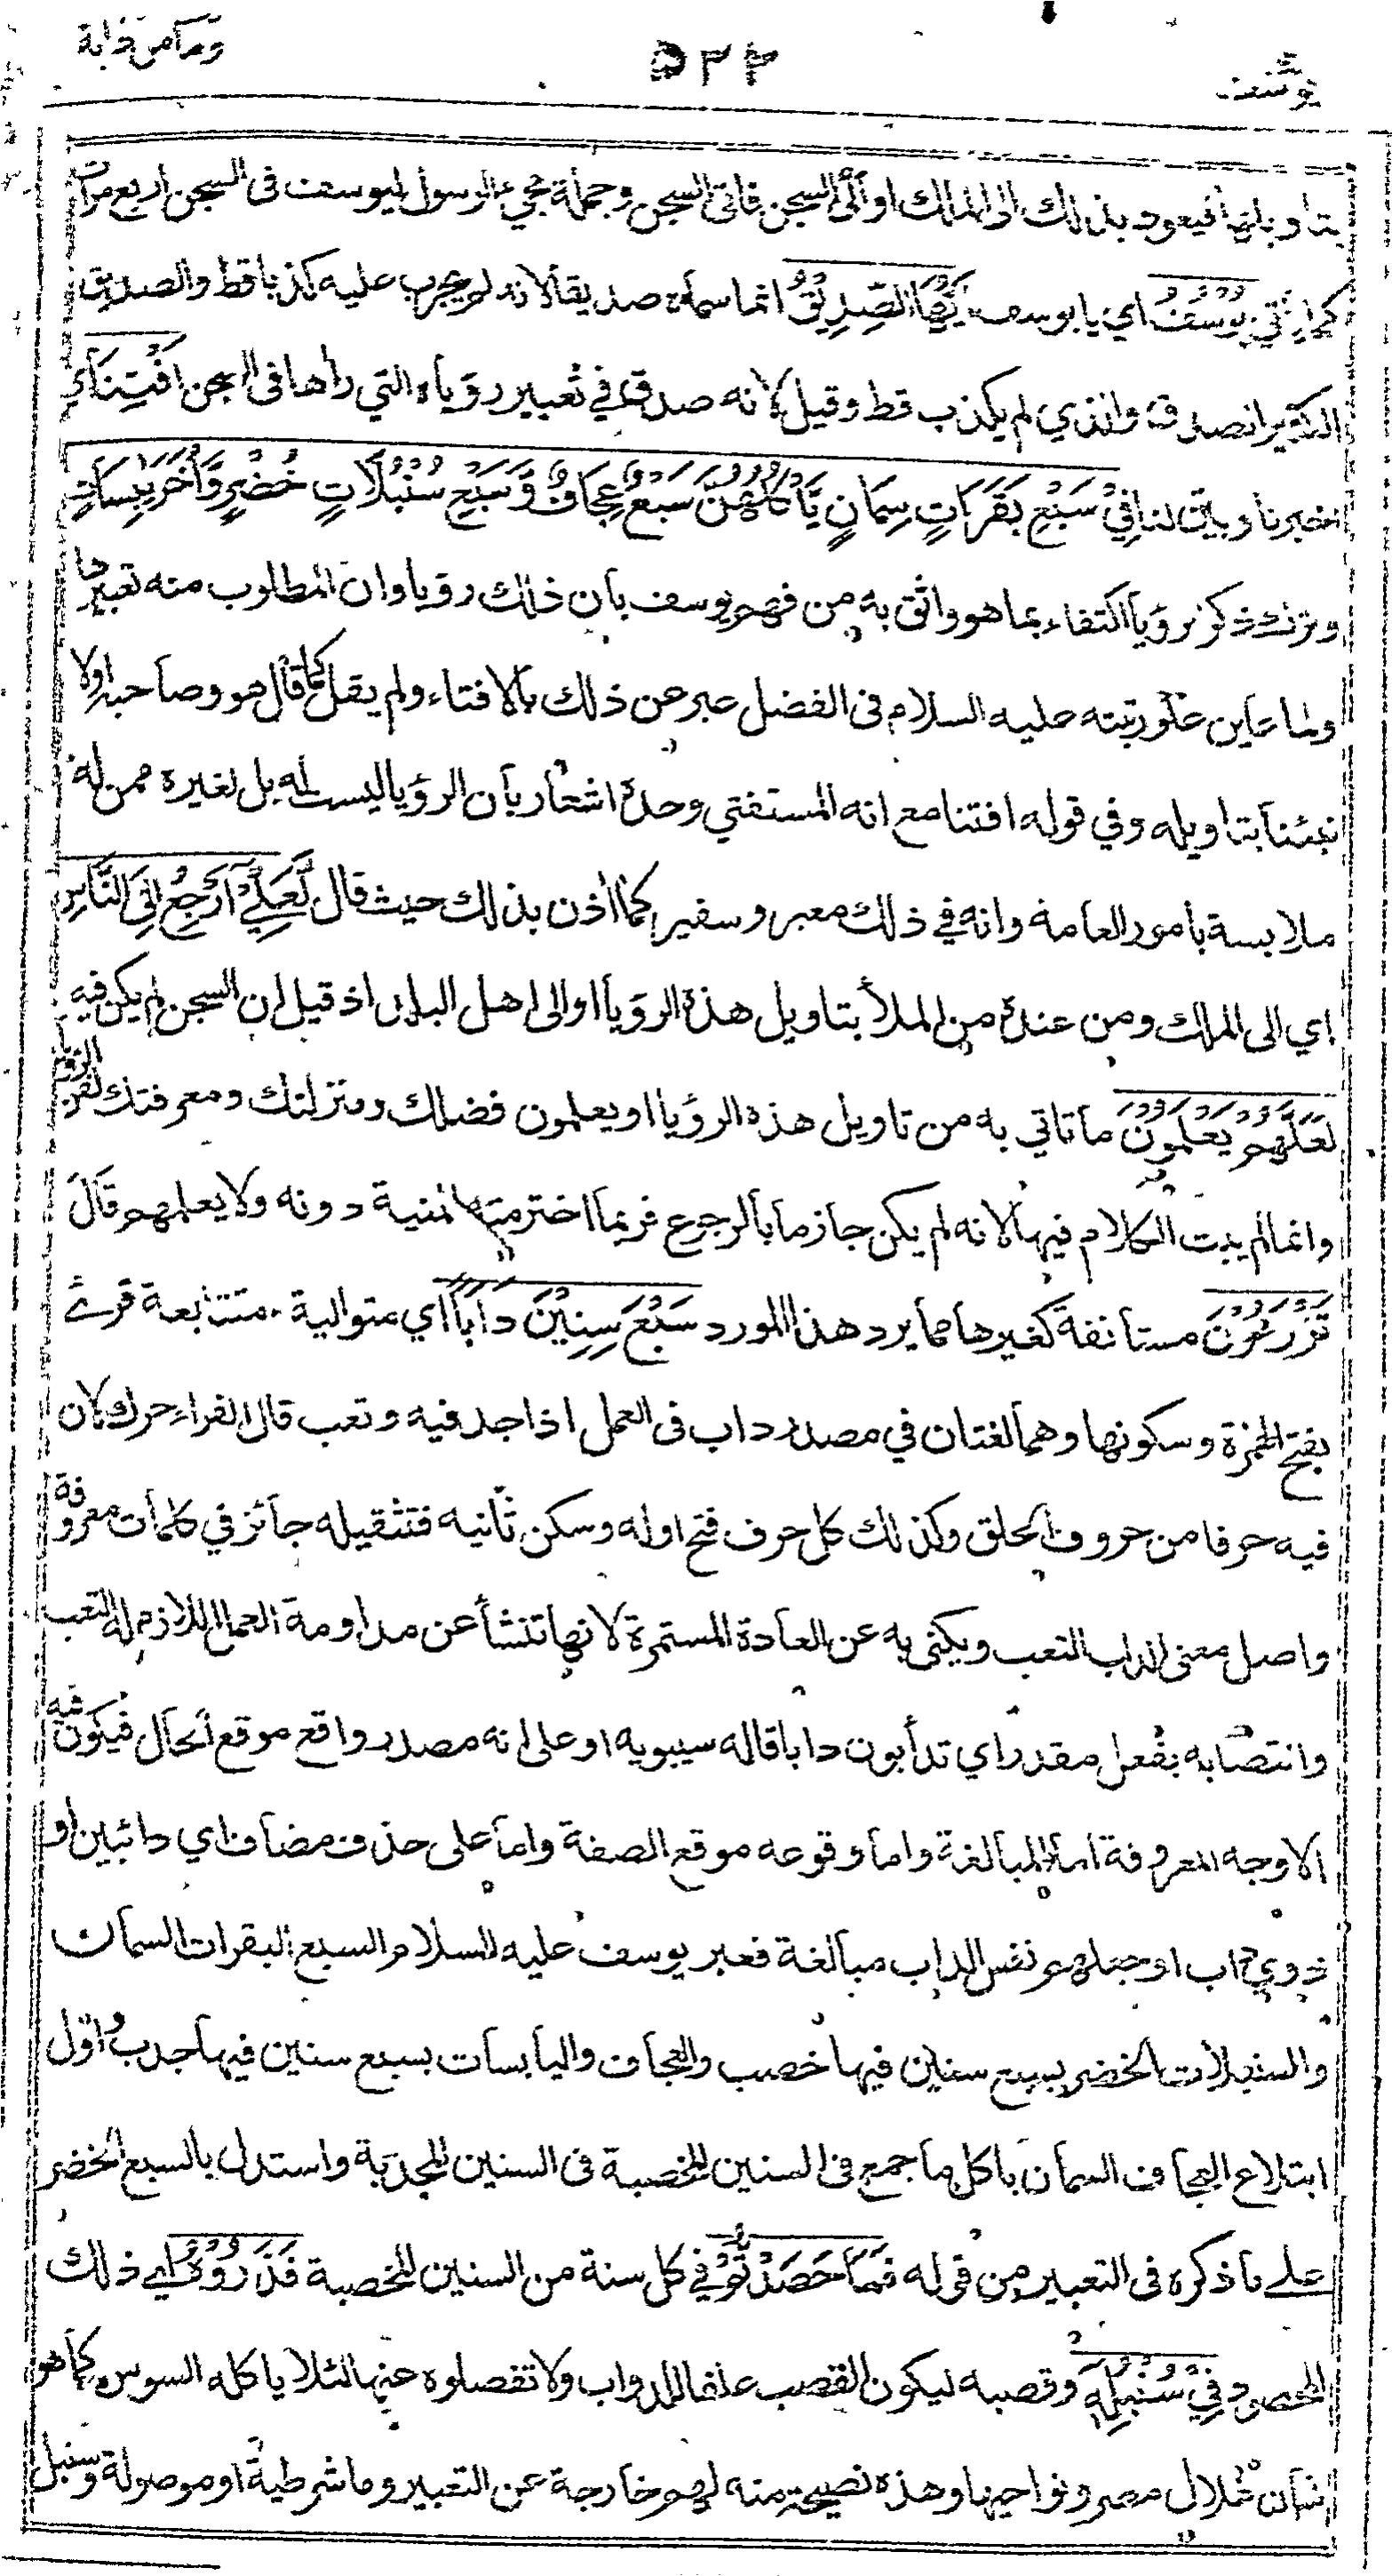 يوسف
٥٣٢
وما من دابة
بتاويلها فيعود بذلك الى الملك او الى السجن فاتى السجن وجملة مجيء الرسول ليوسف فى السجن اربع مرات
يُوسُفُ اي يا يوسف أَيُّهَا الصِّدِّيقُ انما سماه صديقا لانه لم يجرب عليه كذبا قط والصديق
الكثير الصدق والذي لم يكذب قط وقيل لانه صدق في تعبير رؤياه التي راها فى السجن أَفْتِنَا اي
اخبرنا وبين لنا فِي سَبْعِ بَقَرَاتٍ سِمَانٍ يَّأْكُلُهُنَّ سَبْعٌ عِجَافٌ وَّسَبْعِ سُنْبُلَاتٍ خُضْرٍ وَّأُخَرَ يَابِسَاتٍ
وترك ذكر رؤيا اكتفاء بما هو واثق به من فهم يوسف بان ذلك رؤيا وان المطلوب منه تعبيرها
ولما عاين علو رتبته عليه السلام فى الفضل عبر عن ذلك بالافتاء ولم يقل كما قال هو وصاحبه اولا
نبئنا بتاويله وفي قوله افتنا مع انه المستفتي وحده اشعار بان الرؤيا ليست له بل لغيره ممن له
ملابسة بامور العامة وانه في ذلك معبر وسفير كما اذن بذلك حيث قال لَّعَلِّي أَرْجِعُ إِلَى النَّاسِ
اي الى الملك ومن عنده من الملأ بتاويل هذه الرؤيا او الى اهل البلد اذ قيل ان السجن لم يكن فيه
لَعَلَّهُمْ يَعْلَمُونَ ما تاتي به من تاويل هذه الرؤيا او يعلمون فضلك ومنزلتك ومعرفتك لفن الرؤيا
وانما لم يبت الكلام فيهما لانه لم يكن جازما بالرجوع فربما اخترمته المنية دونه ولا يعلمهم قَالَ
تَزْرَعُونَ مستانفة كغيرها مما يرد هذا المورد سَبْعَ سِنِيْنَ دَأَبًا اي متوالية متتابعة قرئ
بفتح الهمزة وسكونها وهما لغتان في مصدر داب فى العمل اذا جد فيه وتعب قال الفراء حرك لان
فيه حرفا من حروف الحلق وكذلك كل حرف فتح اوله وسكن ثانيه فتثقيله جائز في كلمات معروفة
واصل معنى الداب التعب ويكنى به عن العادة المستمرة لانها تنشأ عن مداومة العمل اللازم له التعب
وانتصابه بفعل مقدر اي تدأبون دابا قاله سيبويه او على انه مصدر واقع موقع الحال فيكون فيه
الاوجه المعروفة اما المبالغة واما وقوعه موقع الصفة واما على حذف مضاف اي دائبين او
ذوي داب او جعلهم نفس الداب مبالغة فعبر يوسف عليه السلام السبع البقرات السمان
والسنبلات الخضر بسبع سنين فيها خصب والعجاف واليابسات بسبع سنين فيها جدب واوّل
ابتلاع العجاف السمان باكل ما جمع فى السنين المخصبة فى السنين المجدبة واستدل بالسبع الخضر
على ما ذكره فى التعبير من قوله فَمَا حَصَدْتُّمْ في كل سنة من السنين المخصبة فَذَرُوْهُ اي ذلك
المحصود فِيْ سُنْبُلِهٖ وقصبه ليكون القصب علفا للدواب ولا تفصلوه عنها لئلا ياكله السوس كما هو
شان غلال مصر ونواحيها وهذه نصيحة منه لهم خارجة عن التعبير وما شرطية او موصولة وسنبل